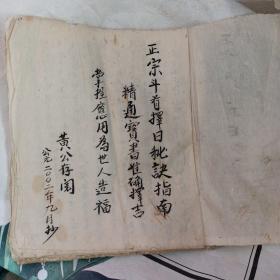 正宗斗首择日秘訣指南
精通寳書准确擇吉
掌握應用為世人造福
黃公存閱
公元二〇〇二年九月抄